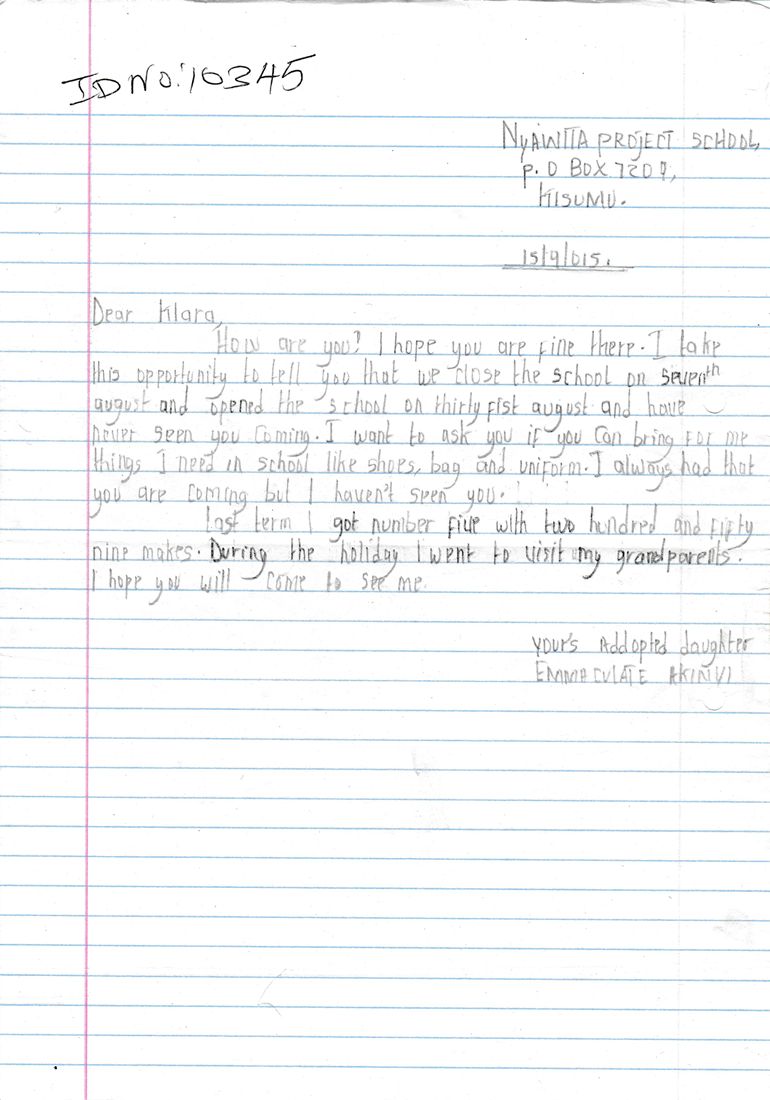 ID NO: 10345
NYAWITA PROJECT SCHOOL,
P. O BOX 7209,
KISUMU.
15/9/015.
Dear Klara,
How are you? I hope you are fine there. I take
this opportunity to tell you that we close the school on seventh
august and opened the school on thirty fist august and have
never seen you coming. I want to ask you if you can bring for me
things I need in school like shoes, bag and uniform. I always had that
you are coming but I haven't seen you.
Last term I got number five with two hundred and fifty
nine makes. During the holiday I went to visit my grandparents.
I hope you will come to see me.
your's Addopted daughter
EMMACULATE